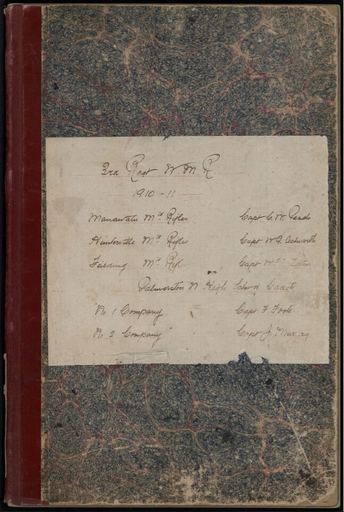 3rd Regt W M R
1910-11
Manawatu Mtd Rifles Capt C. W.
Hunterville Mtd Rifles Capt W.
Feilding Mtd Rif Capt
Palmerston N. High School Cadets
No 1 Company Capt F Foote
No 2 Company Capt J. Murray